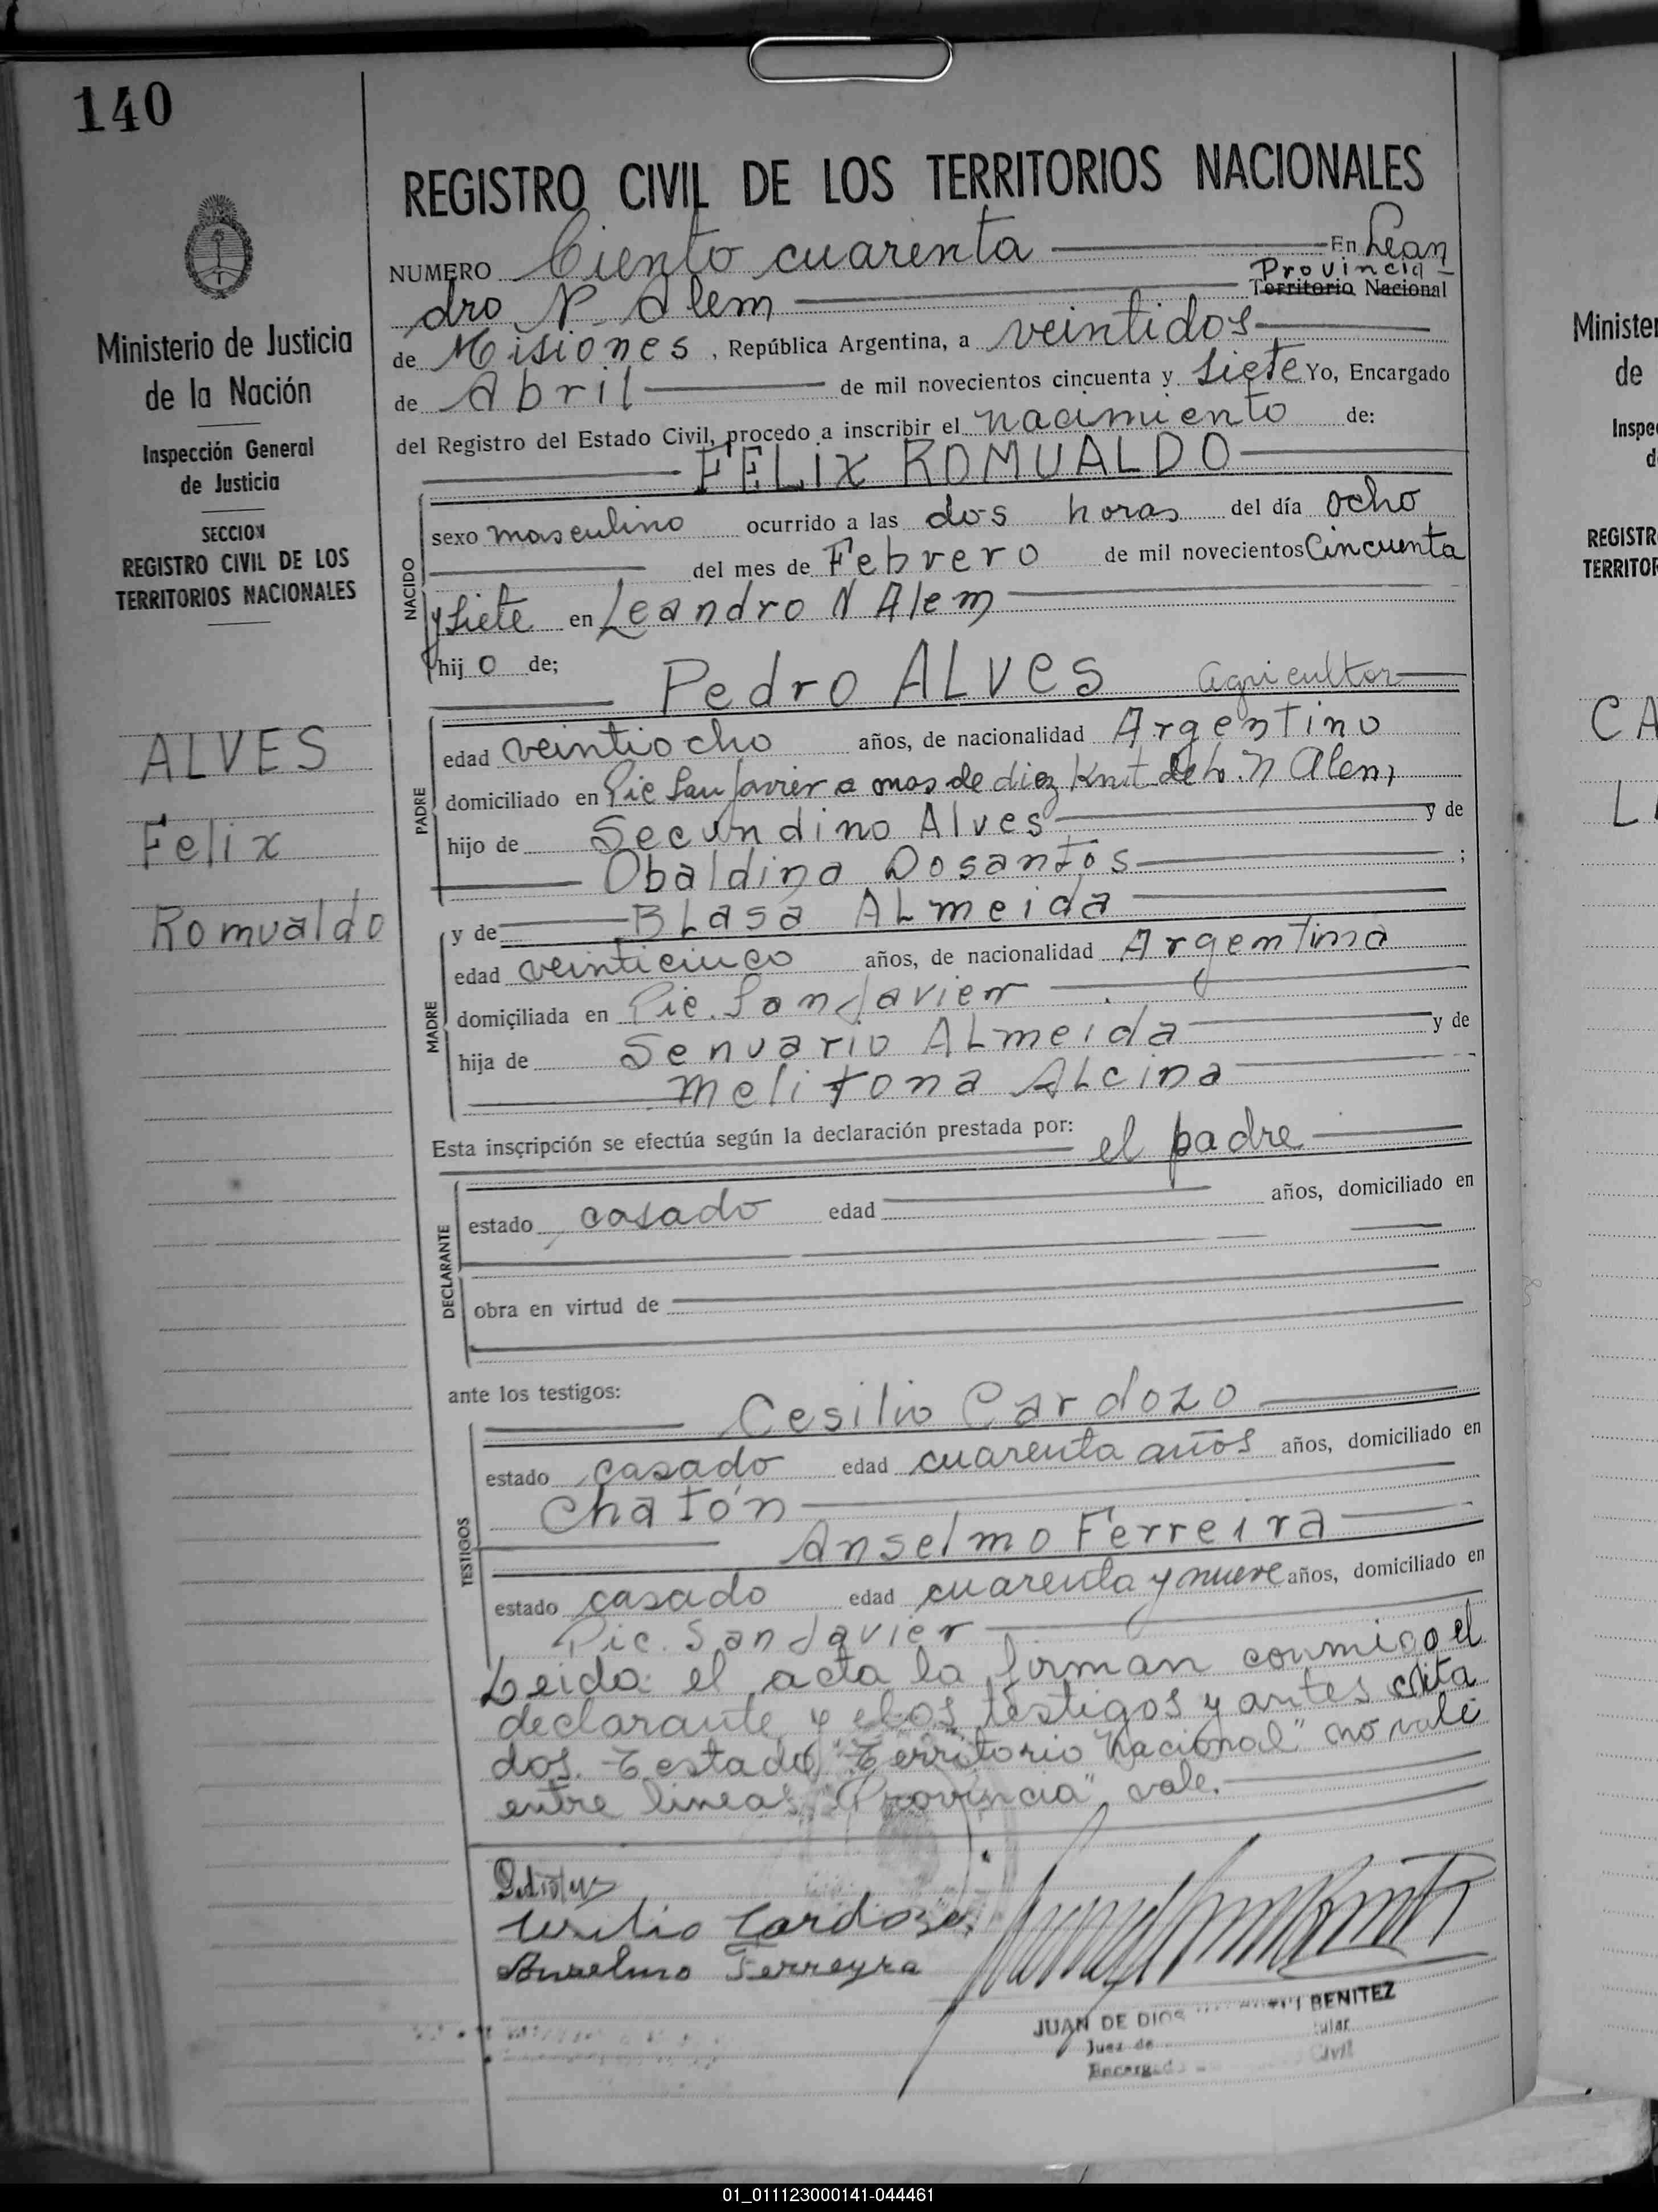 140
REGISTRO CIVIL DE LOS TERRITORIOS NACIONALES
NUMERO Ciento cuarenta En Lean
Provincia
dro N. Alem Territorio Nacional
de Misiones, República Argentina, a veintidos
de Abril de mil novecientos cincuenta y siete Yo, Encargado
del Registro del Estado Civil, procedo a inscribir el nacimiento de:
FELIX ROMUALDO
NACIDO
sexo masculino ocurrido a las dos horas del día ocho
del mes de Febrero de mil novecientos Cincuenta
y siete en Leandro N Alem
hijo de;
Pedro ALVES agricultor
PADRE
edad veintiocho años, de nacionalidad Argentino
domiciliado en Pic San Javier a mas de diez Kmt de L. N Alem,
hijo de Secundino Alves y de
Obaldina Dosantos ;
y de BLasa ALmeida
MADRE
edad veinticinco años, de nacionalidad Argentina
domiciliada en Pic. San Javier
hija de Senuario ALmeida y de
Melitona ALcina
Esta inscripción se efectúa según la declaración prestada por:
el padre
DECLARANTE
estado casado edad años, domiciliado en
obra en virtud de
ante los testigos:
Cesilio Cardozo
TESTIGOS
estado casado edad cuarenta años años, domiciliado en
Chatón
Anselmo Ferreira
estado casado edad cuarenta y nueve años, domiciliado en
Pic. San Javier
Leida el acta la firman conmigo el
declarante y los testigos y antes cita
dos. Testado "Territorio Nacional" no vale
entre lineas "Provincia" vale.
Cardozo
Anselmo Ferreyra
JUAN DE DIOS BENITEZ
Juez de
Encargado Civil
Ministerio de Justicia
de la Nación
Inspección General
de Justicia
SECCION
REGISTRO CIVIL DE LOS
TERRITORIOS NACIONALES
ALVES
Felix
Romualdo
Minister
de
Inspe
d
REGISTR
TERRITOR
CA
L
01_011123000141-044461